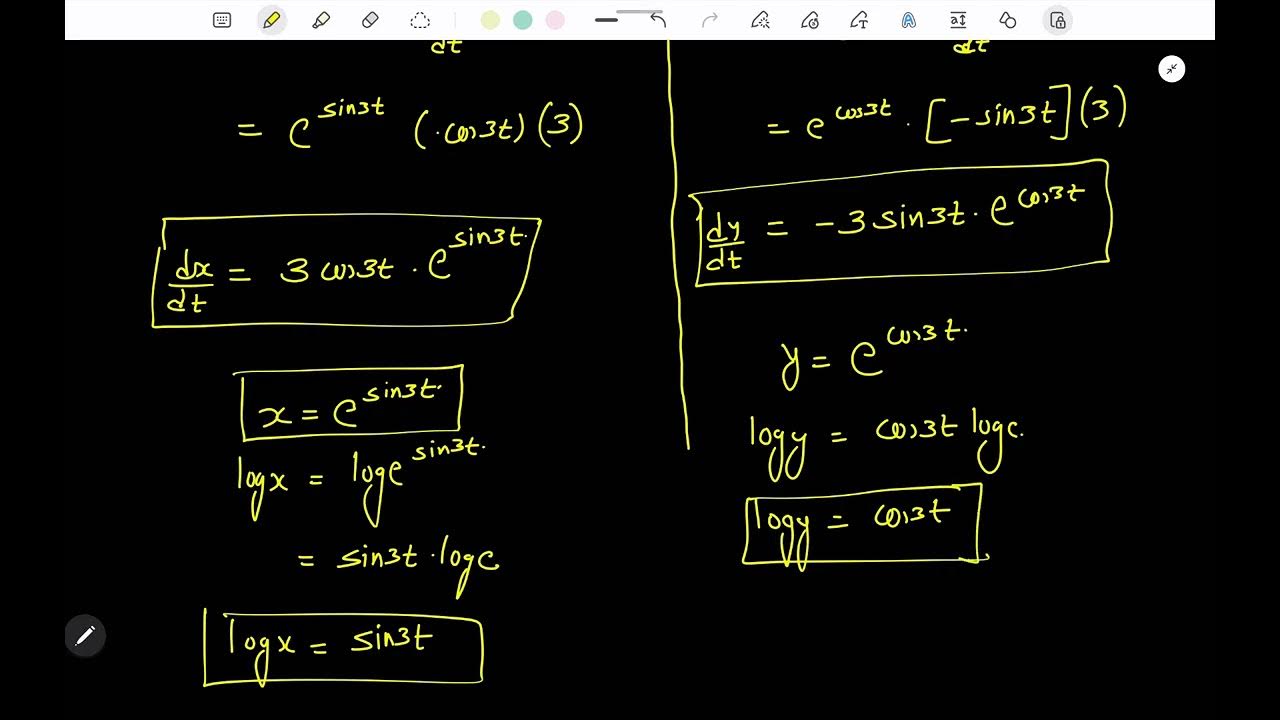 dt
= e^{sin3t} (·cos3t)(3)
dx/dt = 3 cos3t · e^{sin3t}.
x = e^{sin3t}.
logx = loge^{sin3t}.
= sin3t · loge
logx = sin3t
dt
= e^{cos3t} · [-sin3t](3)
dy/dt = -3 sin3t · e^{cos3t}
y = e^{cos3t}.
logy = cos3t loge.
logy = cos3t